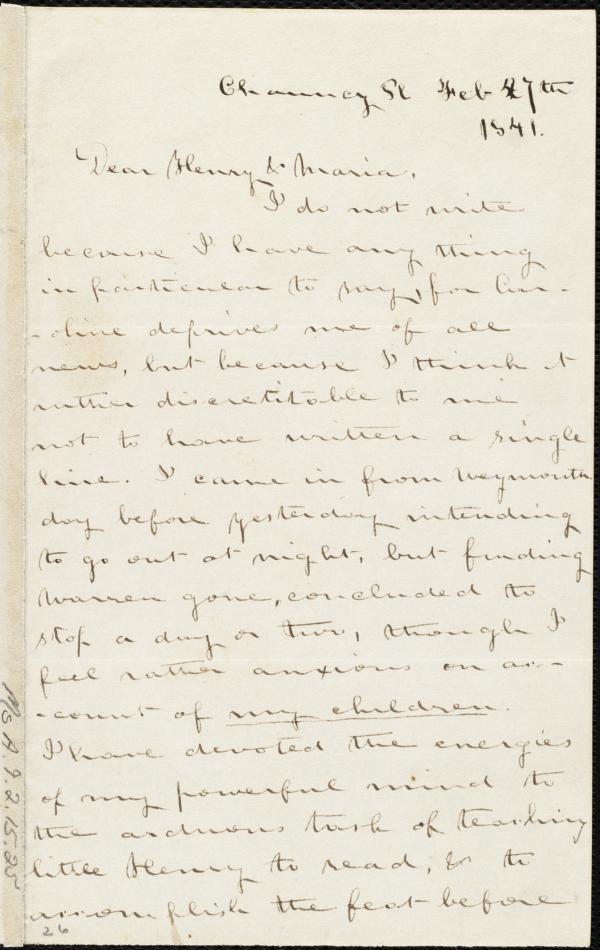 Chauncey St Feb 27th
1841.
Dear Henry & Maria,
I do not write
because I have any thing
in particular to say, for Car-
-oline deprives me of all
news, but because I think it
rather discreditable to me
not to have written a single
line. I came in from Weymouth
day before yesterday intending
to go out at night, but finding
Warren gone, concluded to
stop a day or two, though I
feel rather anxious on ac-
-count of my children.
I have devoted the energies
of my powerful mind to
the arduous task of teaching
little Henry to read, & to
accomplish the feat before
26
Ms A.9.2.15.25